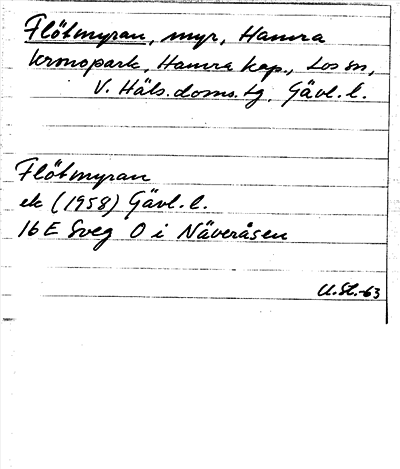 Flötmyran, myr, Hamra
kronopark, Hamra kap., Los sn,
V. Häls. doms. tg. Gävl. l.
Flötmyran
ek (1958) Gävl. l.
16 E Sveg O i Näveråsen
U. St.-63